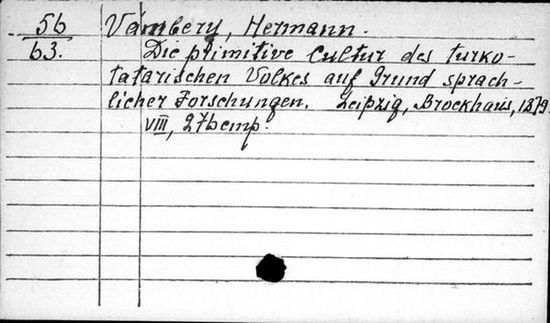 56
63.
Vámbery, Hermann.
Die primitive Cultur des turko-
tatarischen Volkes auf Grund sprach-
licher Forschungen. Leipzig, Brockhaus, 1879.
VIII, 276 стр.